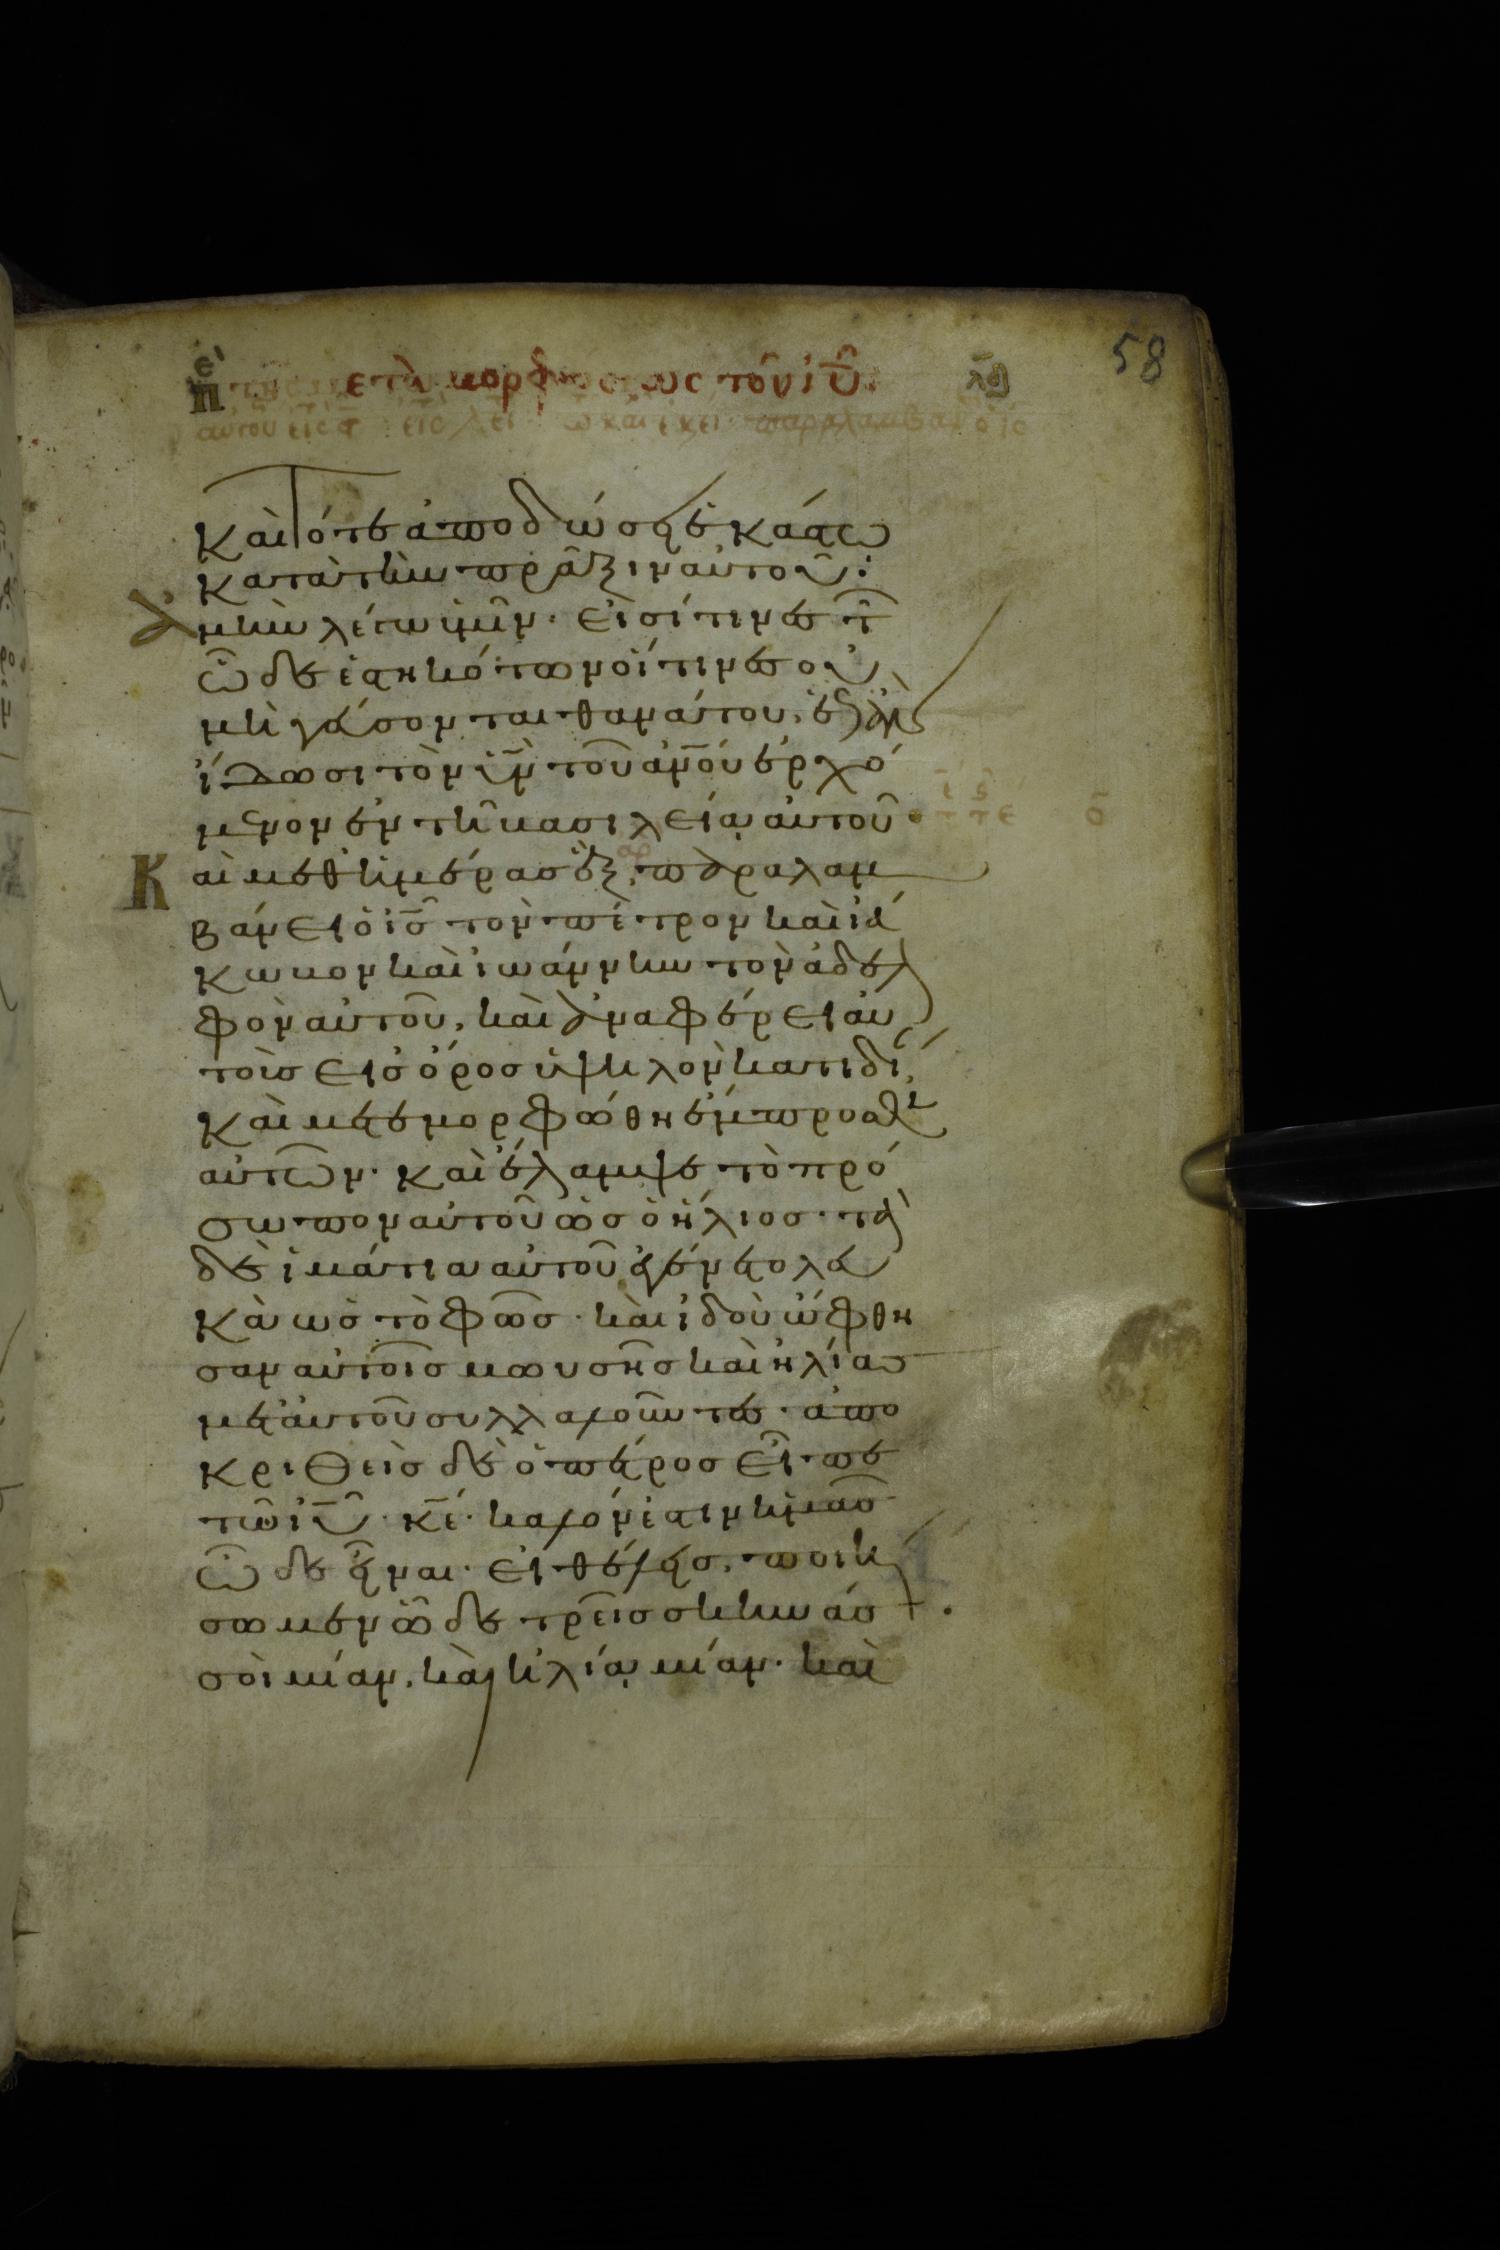 58
μεταμορφώσεως τοῦ ἰῦ
καὶ τότε ἀποδώσει ἑκάστω
κατὰ τὴν πρᾶξιν αὐτοῦ:
ἀμὴν λέγω ὑμῖν· εἰσί τινες τῶ̅
ὧδε ἑστηκότων οἵτινες οὐ
μὴ γεύσονται θανάτου, ἕως ἂν
ἴδωσι τὸν υ̅ν̅ τοῦ α̅ν̅ο̅υ̅ ἐρχό
μενον ἐν τῆ βασιλείᾳ αὐτοῦ·
Καὶ μεθ ἡμέρας ἓξ, παραλαμ
βάνει ὁ ι̅ς̅ τὸν πέτρον καὶ ἰά
κωβον καὶ ἰωάννην τὸν ἀδελ
φὸν αὐτοῦ, καὶ ἀναφέρει αὐ
τοὺς εἰς ὄρος ὑψηλὸν κατιδί
καὶ μετεμορφώθη ἔμπροσθεν
αὐτῶν· καὶ ἔλαμψε τὸ πρό
σωπον αὐτοῦ ὡς ὁ ἥλιος· τὰ
δὲ ἱμάτια αὐτοῦ ἐγένετο λευ
κὰ ὡς τὸ φῶς· καὶ ἰδοὺ ὤφθη
σαν αὐτοῖς μωυσῆς καὶ ἠλίας
μετ αὐτοῦ συλλαλοῦντες· ἀπο
κριθεὶς δὲ ὁ πέτρος εἶπε
τῶ ι̅υ̅· κ̅ε̅· καλόν ἐστιν ἡμᾶς
ὧδε εἶναι· εἰ θέλεις, ποιή
σωμεν ὧδε τρεῖς σκηνάς
σοὶ μίαν, καὶ ἠλίᾳ μίαν· καὶ